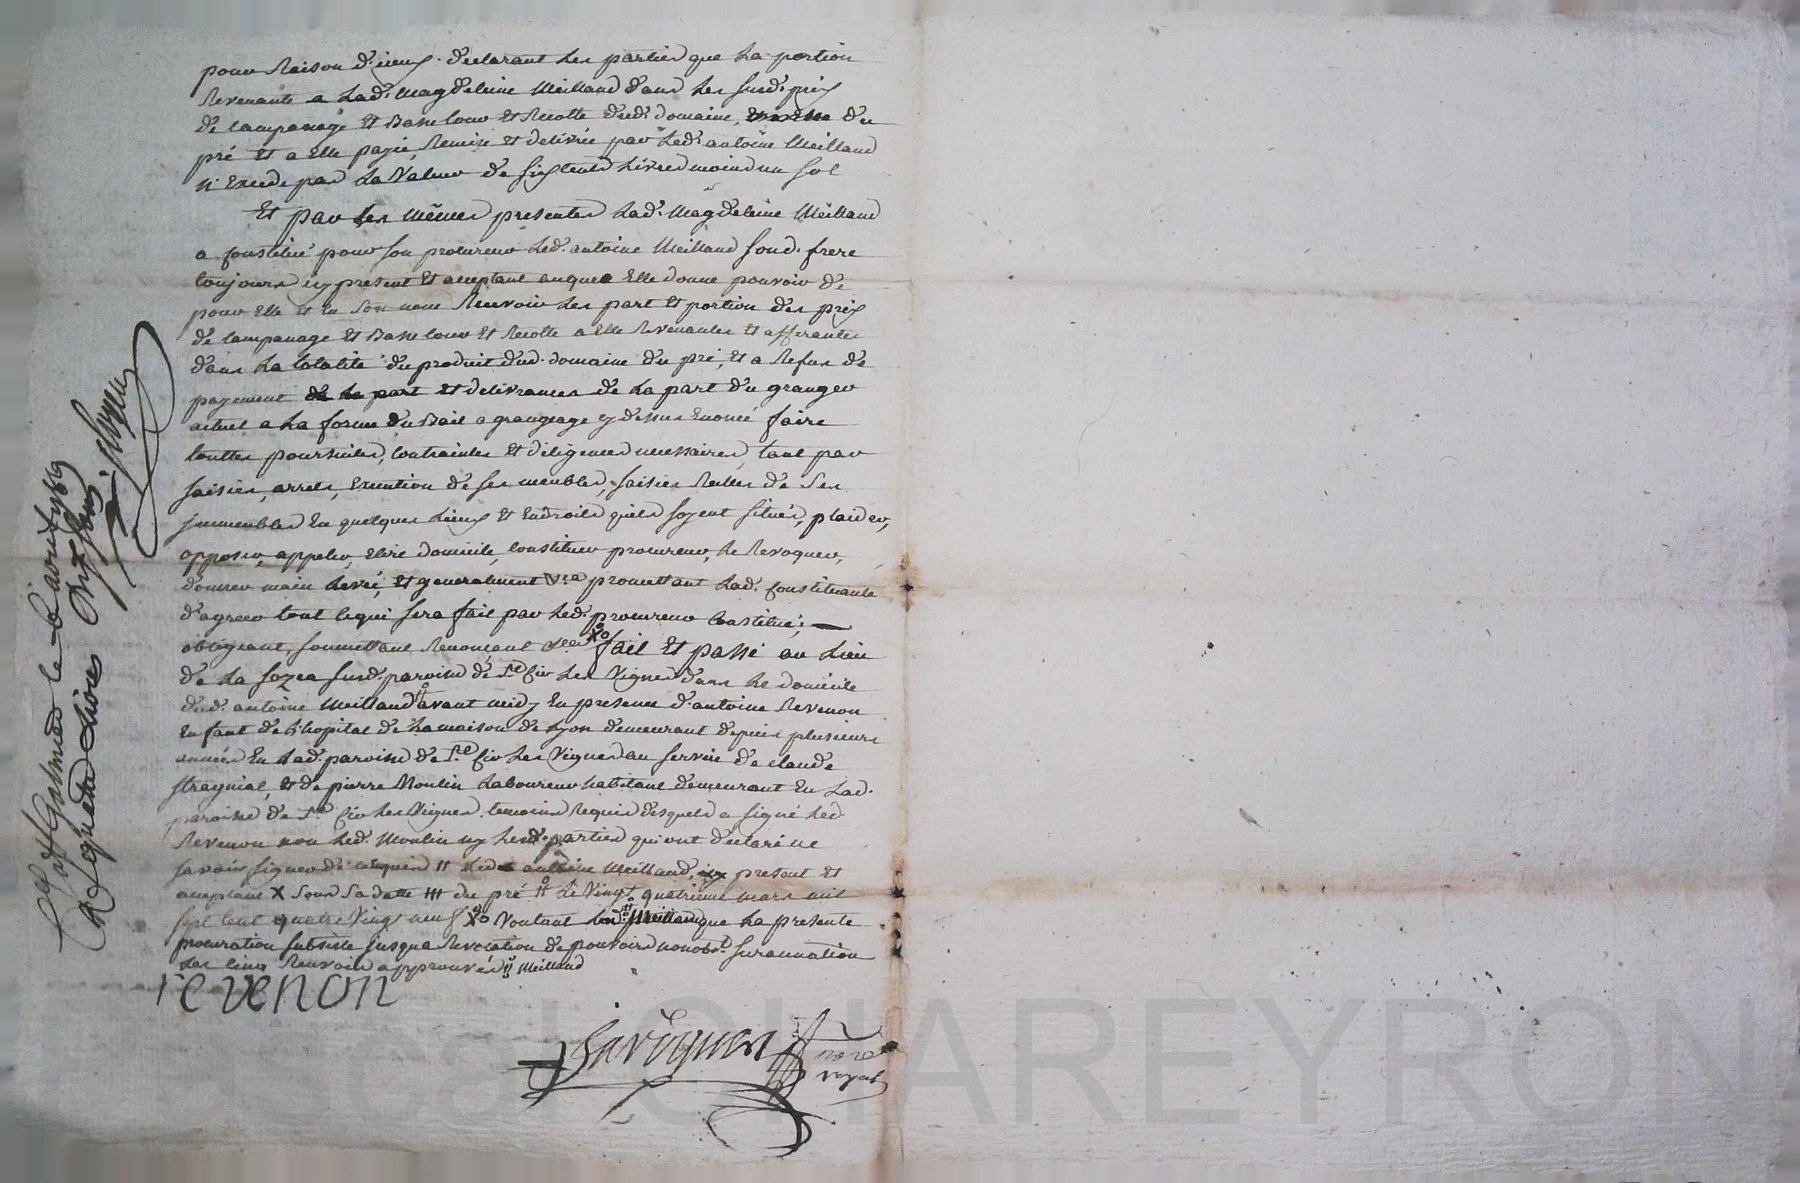 pour Raison d'iceux. declarant les parties que la portion
Revenante a lad. Magdeleine Meilland dans les susd. prix
de lampanage Et Basse cour Et Recolte dud. domaine, du
pré Et a Elle payé, Remise Et delivrée par led. antoine Meilland
n'Excede pas la Valeur de six cents livres moins un sol
Et par les mêmes presentes lad. Magdeleine Meilland
a constitué pour son procureur led. antoine Meilland sond. frere
toujours icy present Et acceptant auquel Elle donne pouvoir de
pour Elle et En son nom Recevoir les part Et portion des prix
de lampanage Et Basse cour Et Recolte a Elle Revenantes Et afferantes
dans la totalité du produit dud. domaine du pré, Et a Refus de
payement de la part Et delivrances de la part du granger
actuel a la forme du Bail a grangeage cy dessus Enoncé faire
touttes poursuites, contraintes Et diligences necessaires, tant par
saisies, arrets, Execution de ses meubles, saisies Reelles de ses
jmmeubles En quelques lieux Et Endroits quils soyent situés, plaider,
opposer, appeler, elire domicile, constituer procureur, le Revoquer,
donner main levée, Et generalment promettant lad. constituante
d'agreer tout cequi sera fait par led. procureur constitué;
obligeant, soumettant Renonçant Xo fait Et passé au lieu
de la sozea susd. paroisse de Ste Cir les Vignes dans le domicile
dud. antoine Meilland avant midy En presence d'antoine Revenon
Enfant de l'hopital de la maison de Lyon demeurant depuis plusieurs
années En lad. paroisse de St Cir les Vignes au service de claude
Et de pierre Moulin Laboureur habitant demeurant En lad.
paroisse de St Cir les Vignes, temoins Requis desquels a signé led.
Revenon non led. Moulin ny lesd. parties qui ont declaré ne
savoir signer de cequis # led. antoine Meilland, present et
acceptant X sous sa datte ### du pré # le Vingt quatrieme mars mil
sept cent quatre Vingt neuf Xo Voulant que la presente
procuration subsiste jusqua Revocation de pouvoirs nonobst. surannation
les cinq Renvois approuvés # Meilland
revenon
not re
royal
Cllé a St Galmier le 6 avril 1789
R quatre livres Onze sous
CHAREYRON